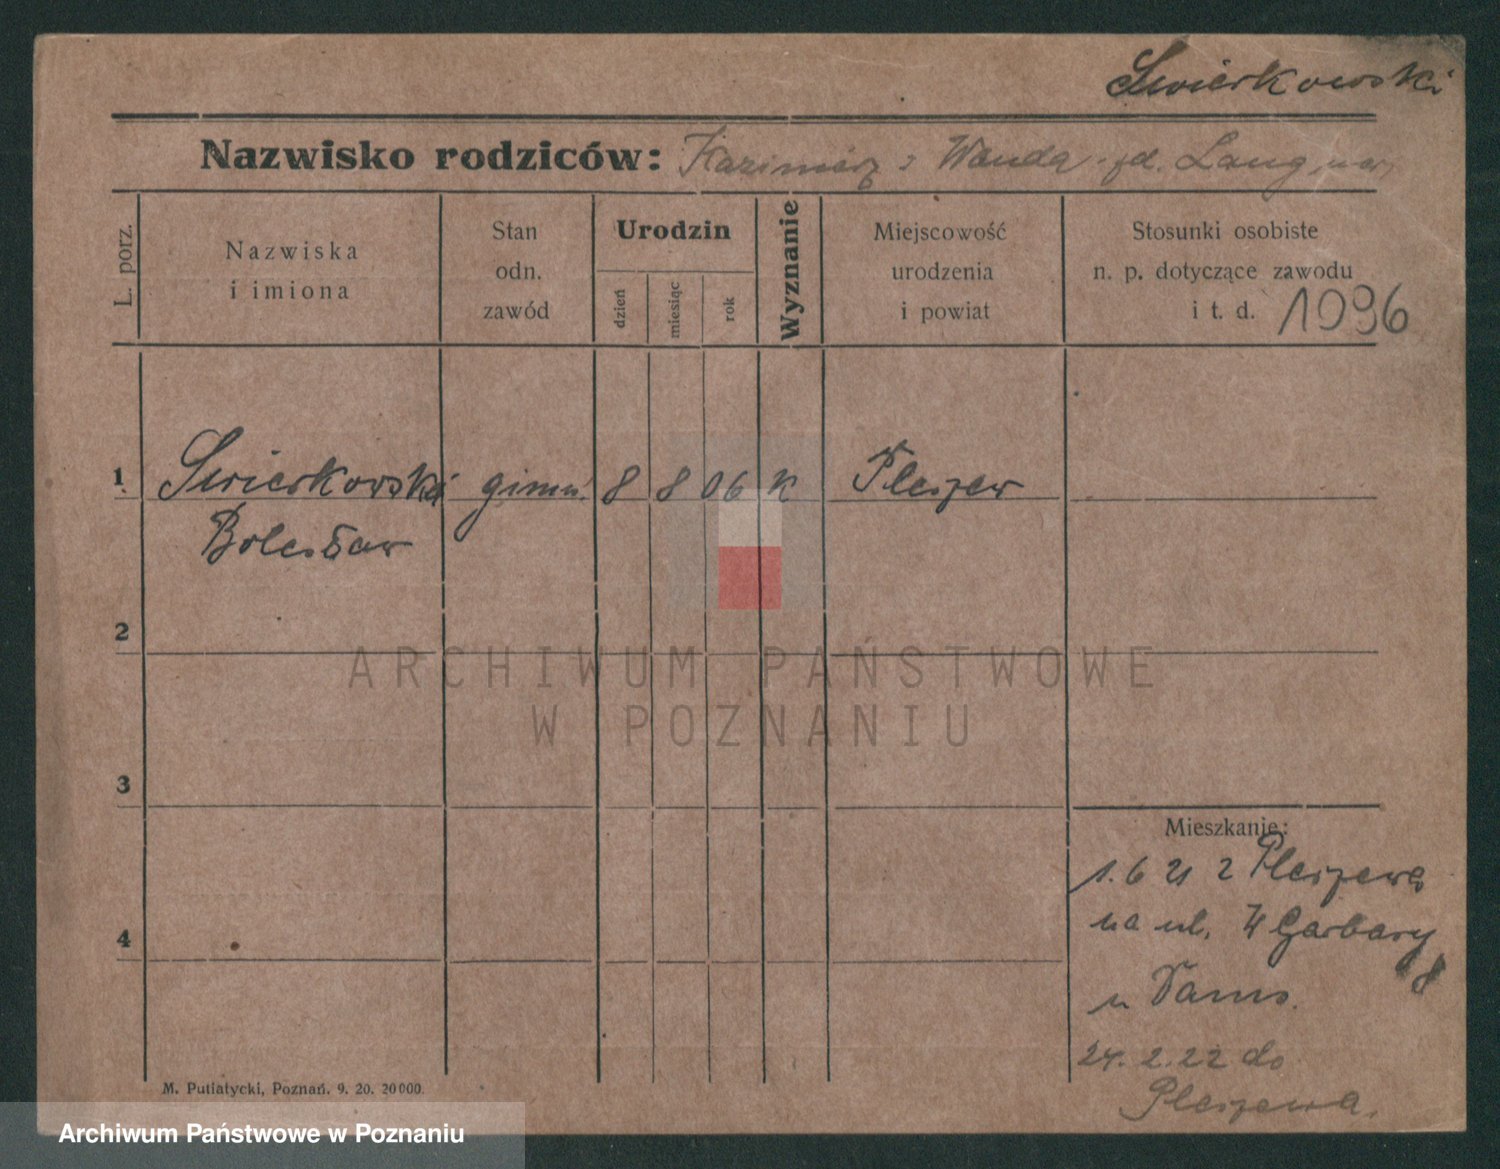 Swierkowski
Nazwisko rodziców: Kazimierz i Wanda Lang
L. porz.
Nazwiska
i imiona
Stan
odn.
zawód
Urodzin
dzień
miesiąc
rok
Wyznanie
Miejscowość
urodzenia
i powiat
Stosunki osobiste
n. p. dotyczące zawodu
i t. d. 1096
1 Swierkowski gimn. 8 8 06 K Pleszew
Bolesław
2
ARCHIWUM PAŃSTWOWE
W POZNANIU
3
Mieszkanie:
1.6 21 z Pleszewa
na ul. W Garbary
8
4
u
24. 2. 22 do
Pleszewa.
M. Putiatycki, Poznań. 9. 20. 20000.
Archiwum Państwowe w Poznaniu